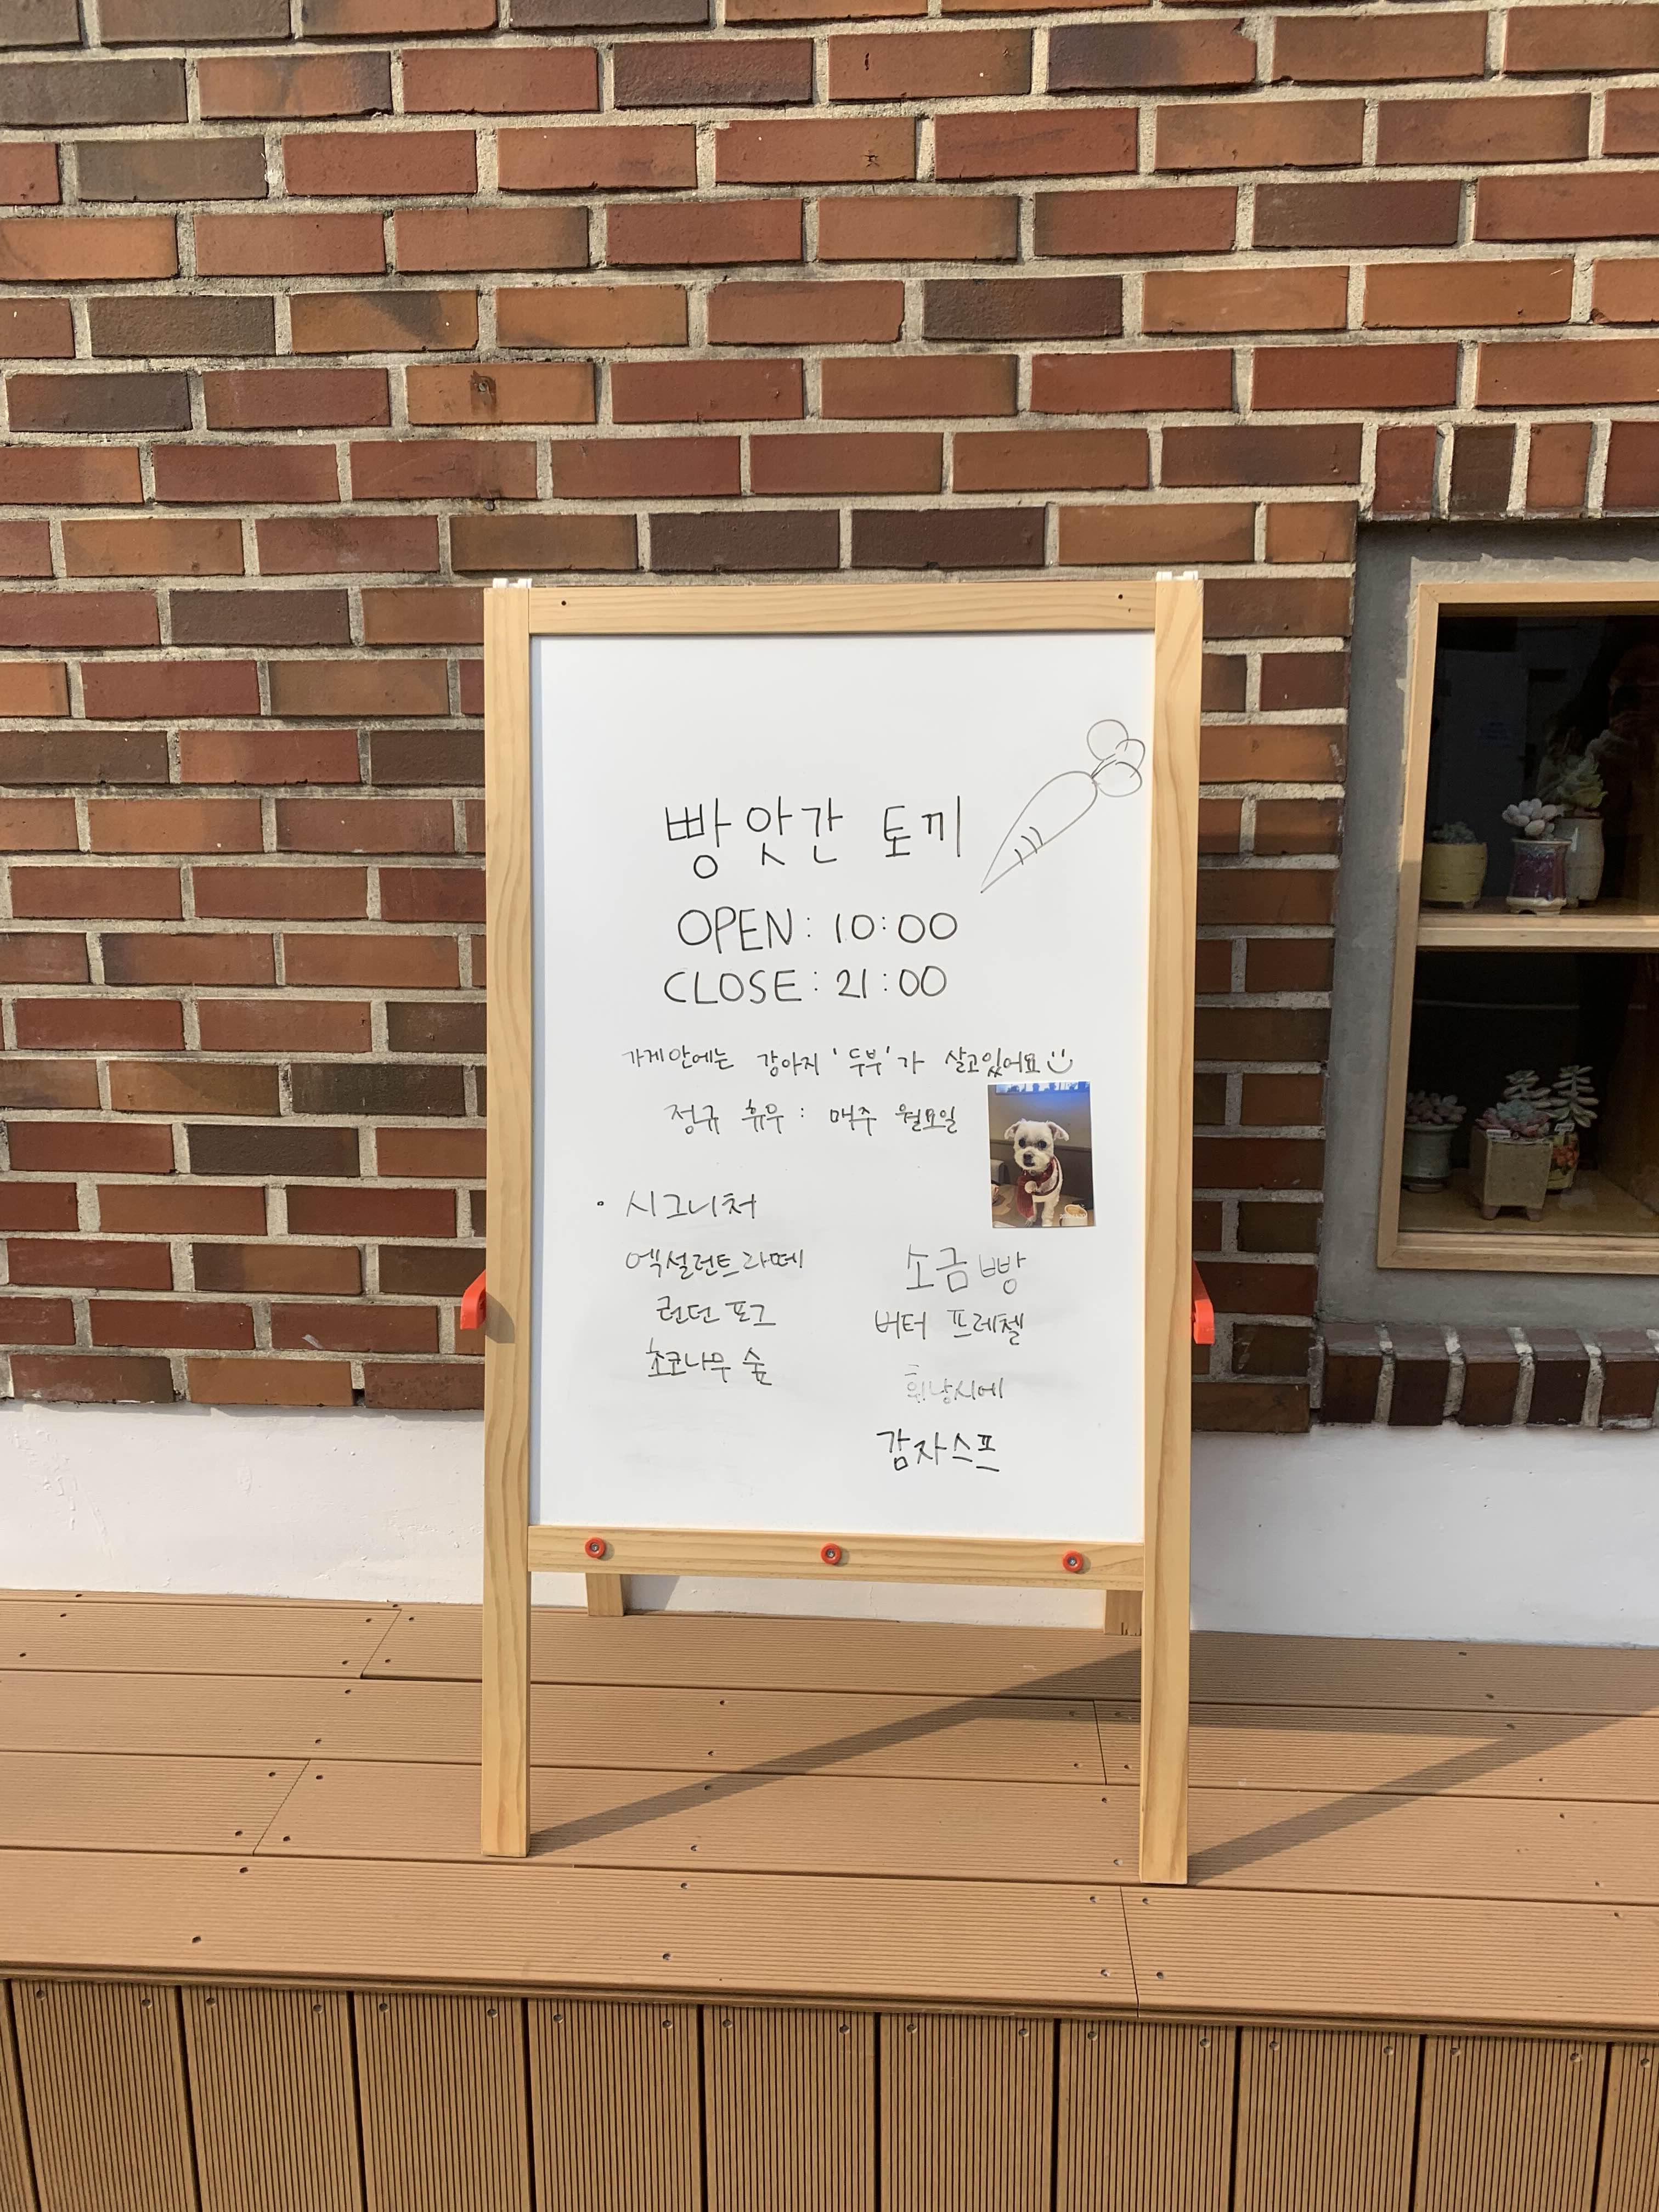 빵앗간 토끼
OPEN: 10:00
CLOSE: 21:00
가게안에는 강아지 '두부'가 살고있어요
정규 휴무: 매주 월요일
• 시그니처
엑설런트라떼
런던 포그
초코나무 숲
소금빵
버터 프레첼
휘낭시에
감자스프